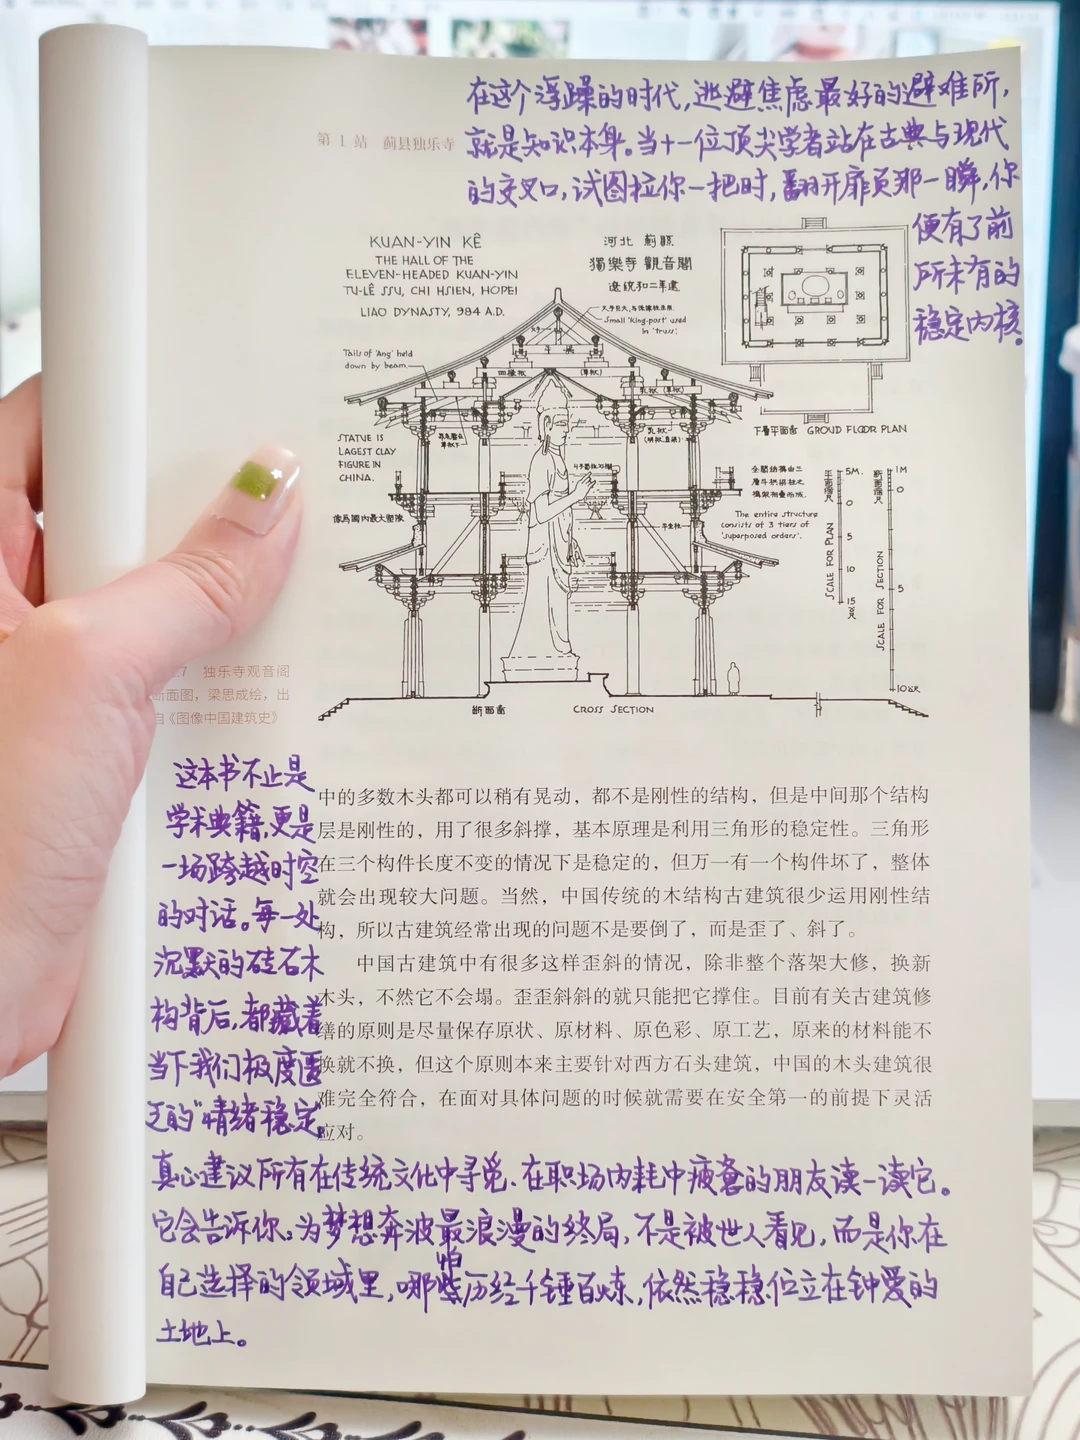 在这个浮躁的时代,逃避焦虑最好的避难所,
就是知识本身。当十一位顶尖学者站在古典与现代
的交叉口,试图拉你一把时,翻开扉页那一瞬,你
便有了前
所未有的
稳定内核。
第 1 站 蓟县独乐寺
KUAN-YIN KÊ
THE HALL OF THE
ELEVEN-HEADED KUAN-YIN
TU-LÊ SSU, CHI HSIEN, HOPEI
LIAO DYNASTY, 984 A.D.
河北 薊縣
獨樂寺 觀音閣
遼統和二年建
Small 'King-post' used
in 'truss'.
Tails of 'Ang' held
down by beam.
STATUE IS
LAGEST CLAY
FIGURE IN
CHINA.
像爲國內最大塑像
下層平面圖 GROUND FLOOR PLAN
全部結構由三
層斗栱梁柱之
構架相疊而成.
The entire structure
consists of 3 tiers of
'superposed orders'.
平面尺
5M.
0
5
10
15
SCALE FOR PLAN
斷面尺
1M
0
5
10
SCALE FOR SECTION
斷面圖
CROSS SECTION
.7 独乐寺观音阁
断面图，梁思成绘，出
自《图像中国建筑史》
这本书不止是
学术典籍,更是
一场跨越时空
的对话。每一处
沉默的砖石木
构背后,都藏着
当下我们极度匮
乏的"情绪稳定"。
中的多数木头都可以稍有晃动，都不是刚性的结构，但是中间那个结构
层是刚性的，用了很多斜撑，基本原理是利用三角形的稳定性。三角形
在三个构件长度不变的情况下是稳定的，但万一有一个构件坏了，整体
就会出现较大问题。当然，中国传统的木结构古建筑很少运用刚性结
构，所以古建筑经常出现的问题不是要倒了，而是歪了、斜了。
中国古建筑中有很多这样歪斜的情况，除非整个落架大修，换新
木头，不然它不会塌。歪歪斜斜的就只能把它撑住。目前有关古建筑修
缮的原则是尽量保存原状、原材料、原色彩、原工艺，原来的材料能不
换就不换，但这个原则本来主要针对西方石头建筑，中国的木头建筑很
难完全符合，在面对具体问题的时候就需要在安全第一的前提下灵活
应对。
真心建议所有在传统文化中寻觅、在职场内耗中疲惫的朋友读一读它。
它会告诉你:为梦想奔波最浪漫的终局,不是被世人看见,而是你在
自己选择的领域里,哪怕历经千锤百炼,依然稳稳伫立在钟爱的
土地上。